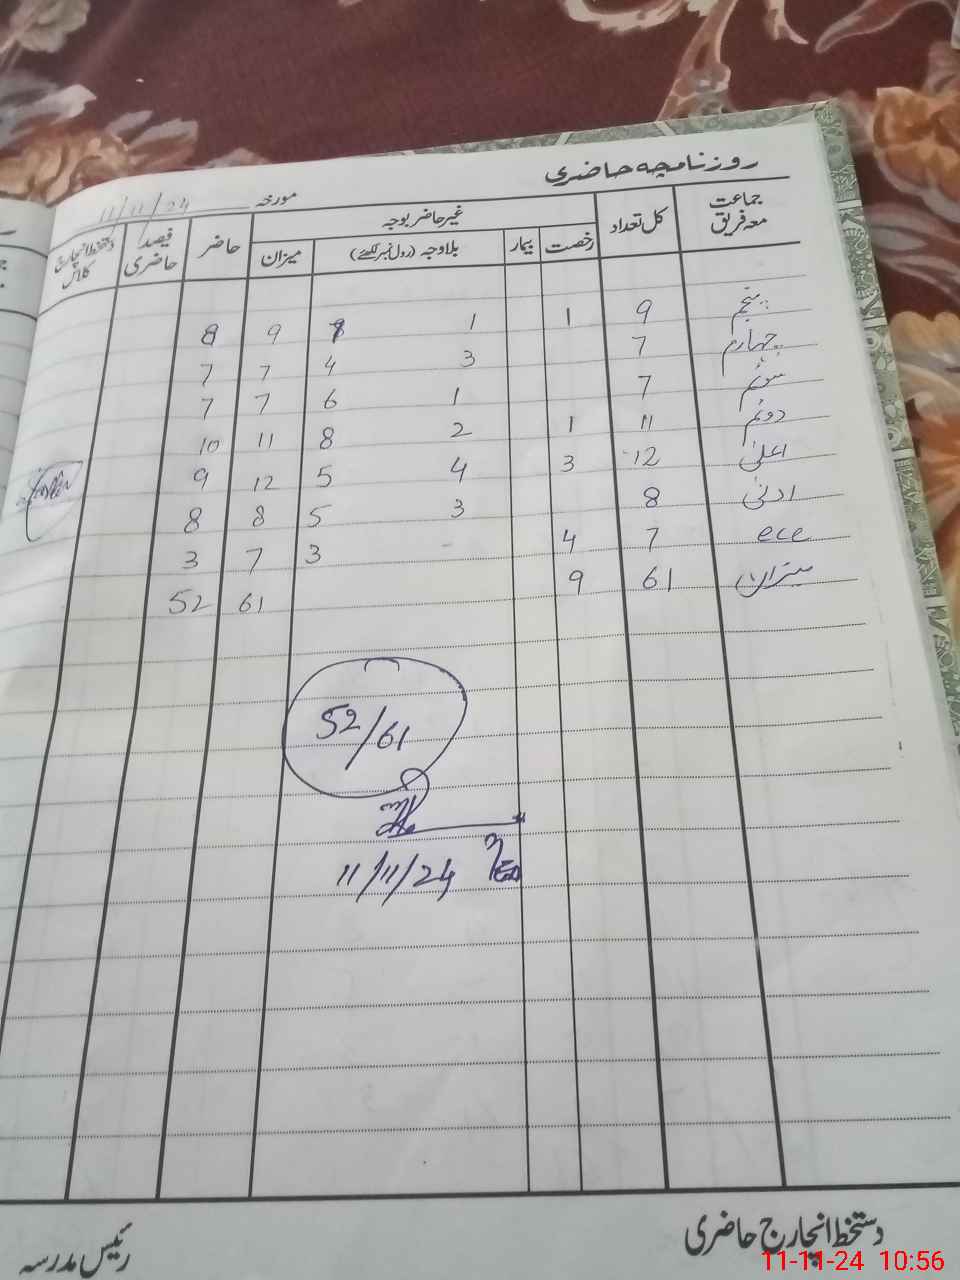 روزنامچہ حاضری
مورخہ 11/11/24
جماعت معہ فریق کل تعداد غیر حاضر بوجہ حاضر فیصد حاضری دستخط انچارج کلاس
رخصت بیمار بلاوجہ (رول نمبر لکھئے) میزان
پنجم 9 1 1 8 9 8
چہارم 7 3 4 7 7
سوئم 7 1 6 7 7
دوئم 11 1 2 8 11 10
اعلیٰ 12 3 4 5 12 9
ادنیٰ 8 3 5 8 8
ece 7 4 - 3 7 3
میزان 61 9 61 52
52/61
11/11/24
دستخط انچارج حاضری رئیس مدرسہ
11-11-24 10:56